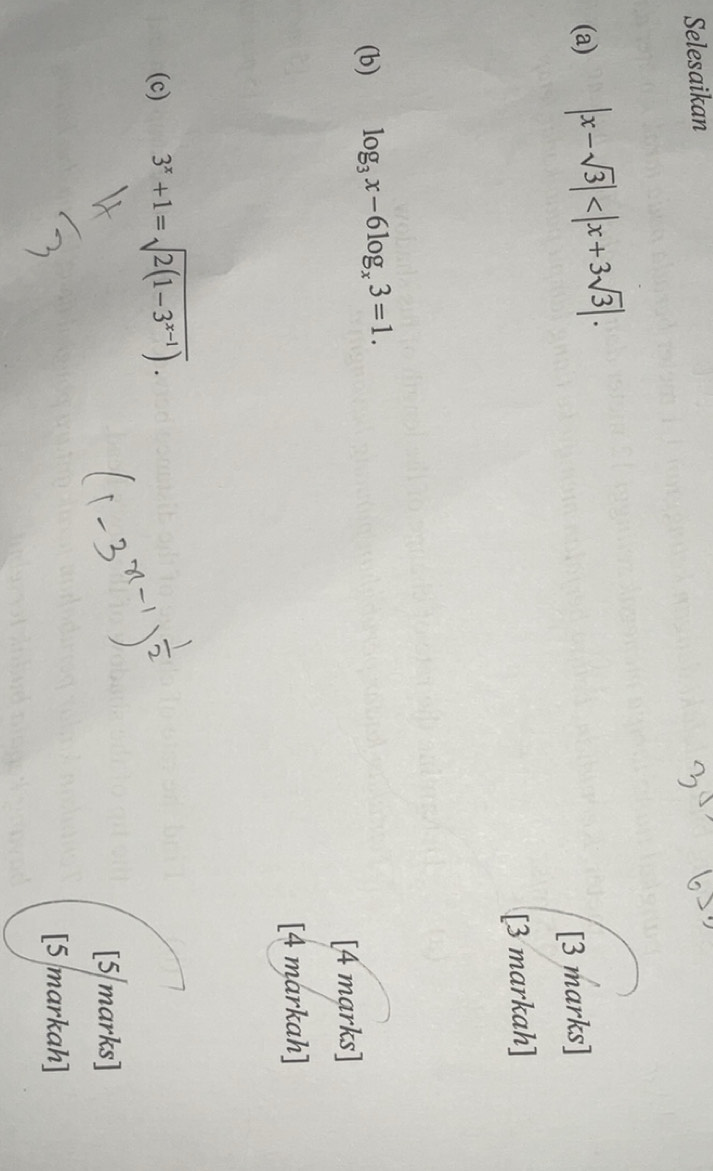 Selesaikan
(a) |x−√3| < |x+3√3|.
[3 marks]
[3 markah]
(b) log₃ x − 6 logₓ 3 = 1.
[4 marks]
[4 markah]
(c) 3ˣ + 1 = √(2(1−3ˣ⁻¹)).
(1 − 3ˣ⁻¹)^½
[5 marks]
[5 markah]